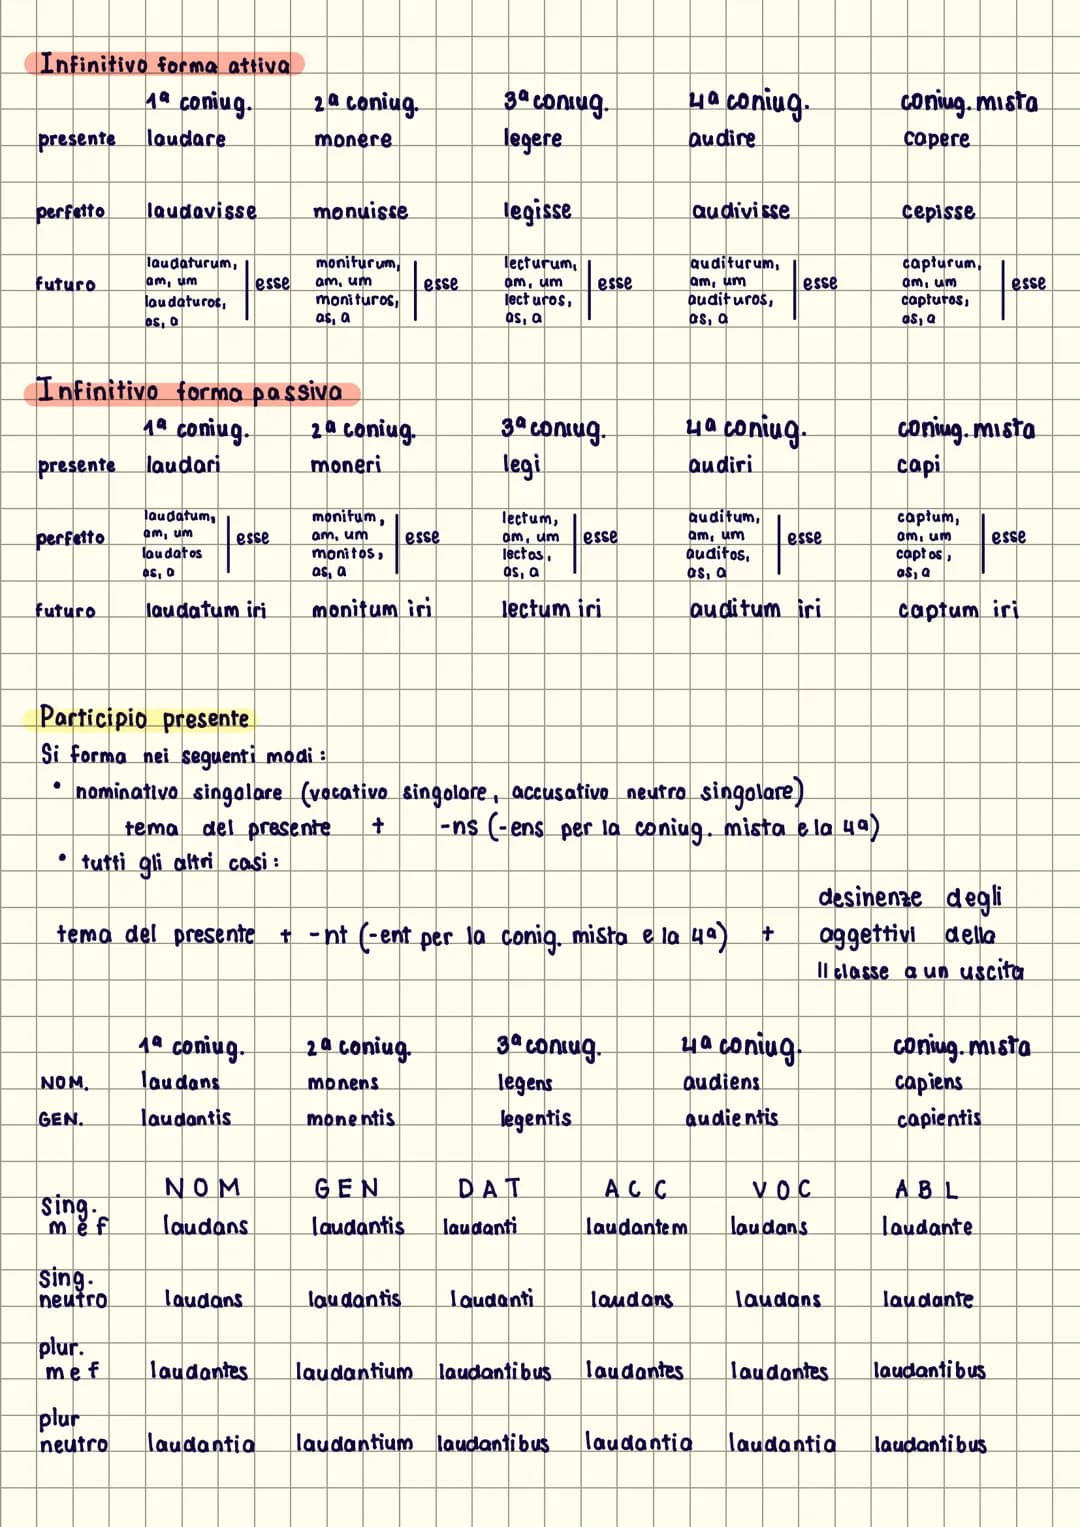 Infinitivo forma attiva
1ª coniug. 2ª coniug. 3ª coniug. 4ª coniug. coniug. mista
presente laudare monere legere audire capere
perfetto laudavisse monuisse legisse audivisse cepisse
laudaturum, moniturum, lecturum, auditurum, capturum,
futuro am, um esse am, um esse am, um esse am, um esse am, um esse
laudaturos, monituros, lecturos, audituros, capturos,
as, a as, a as, a as, a as, a
Infinitivo forma passiva
1ª coniug. 2ª coniug. 3ª coniug. 4ª coniug. coniug. mista
presente laudari moneri legi audiri capi
laudatum, monitum, lectum, auditum, captum,
perfetto am, um esse am, um esse am, um esse am, um esse am, um esse
laudatos monitos, lectos, auditos, captos,
as, a as, a as, a as, a as, a
futuro laudatum iri monitum iri lectum iri auditum iri captum iri
Participio presente
Si forma nei seguenti modi:
• nominativo singolare (vocativo singolare, accusativo neutro singolare)
tema del presente + -ns (-ens per la coniug. mista e la 4ª)
• tutti gli altri casi:
desinenze degli
tema del presente + -nt (-ent per la conig. mista e la 4ª) + aggettivi della
II classe a un uscita
1ª coniug. 2ª coniug. 3ª coniug. 4ª coniug. coniug. mista
NOM. laudans monens legens audiens capiens
GEN. laudantis monentis legentis audientis capientis
NOM GEN DAT ACC VOC ABL
sing.
m e f laudans laudantis laudanti laudantem laudans laudante
sing.
neutro laudans laudantis laudanti laudans laudans laudante
plur.
m e f laudantes laudantium laudantibus laudantes laudantes laudantibus
plur
neutro laudantia laudantium laudantibus laudantia laudantia laudantibus